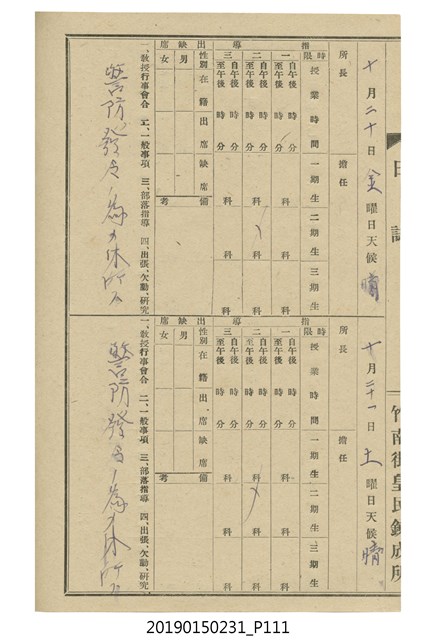 日誌
竹南街皇民鍊成所
十月二十日金曜日天候晴
所長 擔任
指導
時限 授業時間 一期生 二期生 三期生
一 自午後 時 分 至午後 時 分 科 科 科
二 自午後 時 分 至午後 時 分 科 科 科
三 自午後 時 分 至午後 時 分 科 科 科
出缺席
性別 在籍 出席 缺席 備考
男
女
一、教授行事會合 二、一般事項 三、部落指導 四、出張、欠勤、研究
警防發令ノ為メ休所ス
十月二十一日土曜日天候晴
所長 擔任
指導
時限 授業時間 一期生 二期生 三期生
一 自午後 時 分 至午後 時 分 科 科 科
二 自午後 時 分 至午後 時 分 科 科 科
三 自午後 時 分 至午後 時 分 科 科 科
出缺席
性別 在籍 出席 缺席 備考
男
女
一、教授行事會合 二、一般事項 三、部落指導 四、出張、欠勤、研究
警防發令ノ為メ休所ス
20190150231_P111